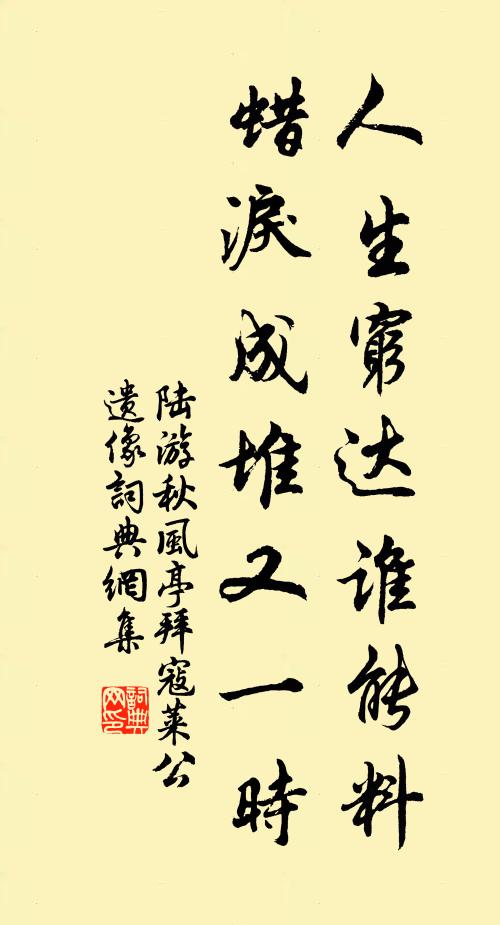 人生窮达谁能料
蜡淚成堆又一時
陆游秋風亭拜寇莱公
遺像詞典網集
詞典网印